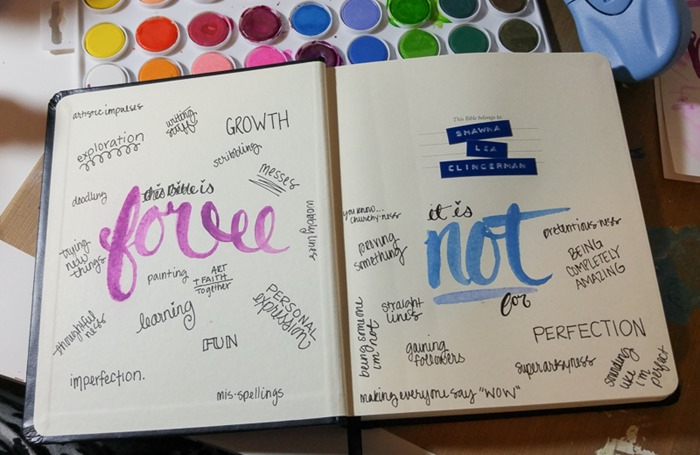 artistic impulses
writing stuff
GROWTH
exploration
scribbling
messes
doodling
this Bible is
for
wobbly lines
trying
new
things
painting
ART
+ FAITH
together
learning
PERSONAL
expression
thoughtful
ness
FUN
imperfection.
mis-spellings
This Bible belongs to
SHAWNA
LEA
CLINGERMAN
you know...
churchy-ness
it is
not
for
pretentiousness
proving
something
BEING
COMPLETELY
AMAZING
straight
lines
being someone
i'm not
PERFECTION
gaining
followers
superartsyness
sounding
like
i'm
perfect
making everyone say "WOW"